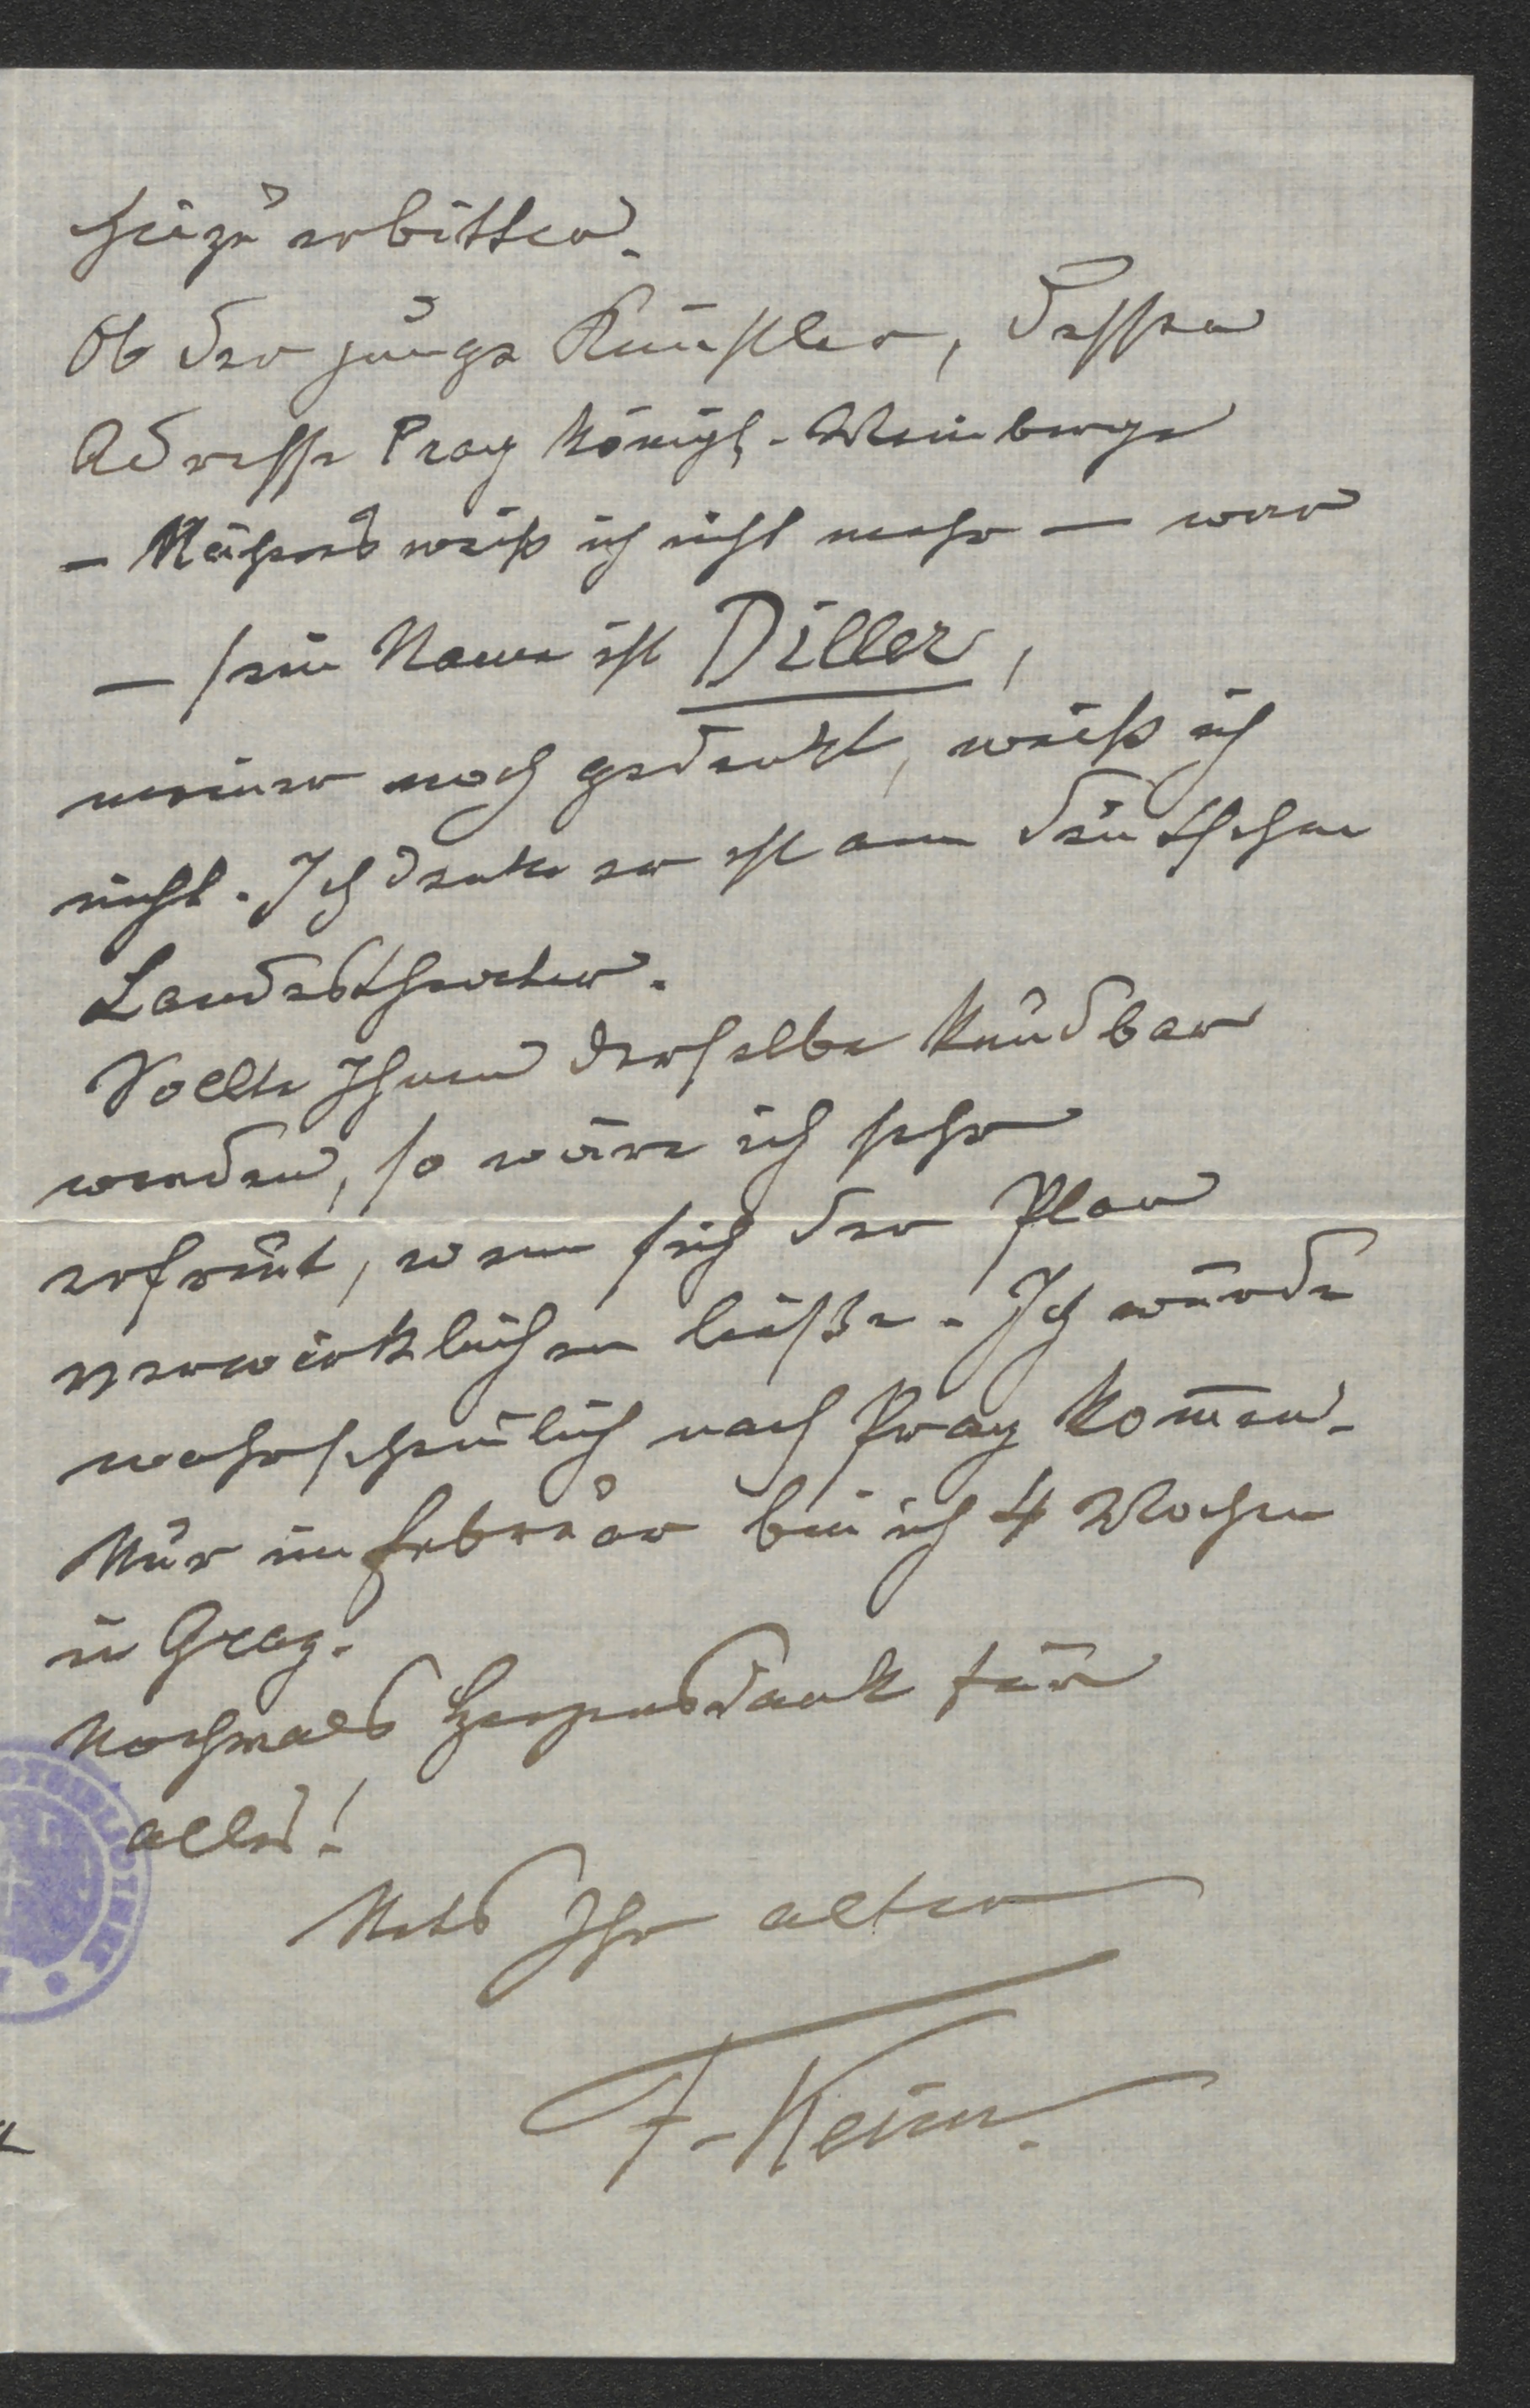 hiezu erbitten.
Ob der junge Künstler, dessen
Adresse Prag Königl. Weinberge
– Näheres weiß ich nicht mehr – war
– sein Name ist Diller,
meiner noch gedenkt, weiß ich
nicht. Ich denke er ist am deutschen
Landestheater.
Sollte Ihnen derselbe kundbar
werden, so wäre ich sehr
erfreut, wenn sich der Plan
verwirklichen ließe. Ich würde
wahrscheinlich nach Prag kommen.
Nur im Februar bin ich 4 Wochen
in Graz.
Nochmals Herzensdank für
alles!
Stets Ihr alter
F. Keim.